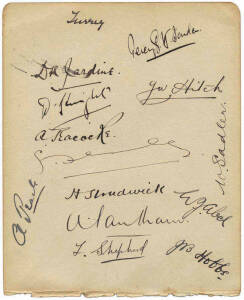 Surrey
Percy G H Fender
D R Jardine.
D. Knight
J W Hitch
A Peacocke.
W. Sadler
H Strudwick
W J Abel
A Sandham.
A Peach
T. Shepherd
J B Hobbs